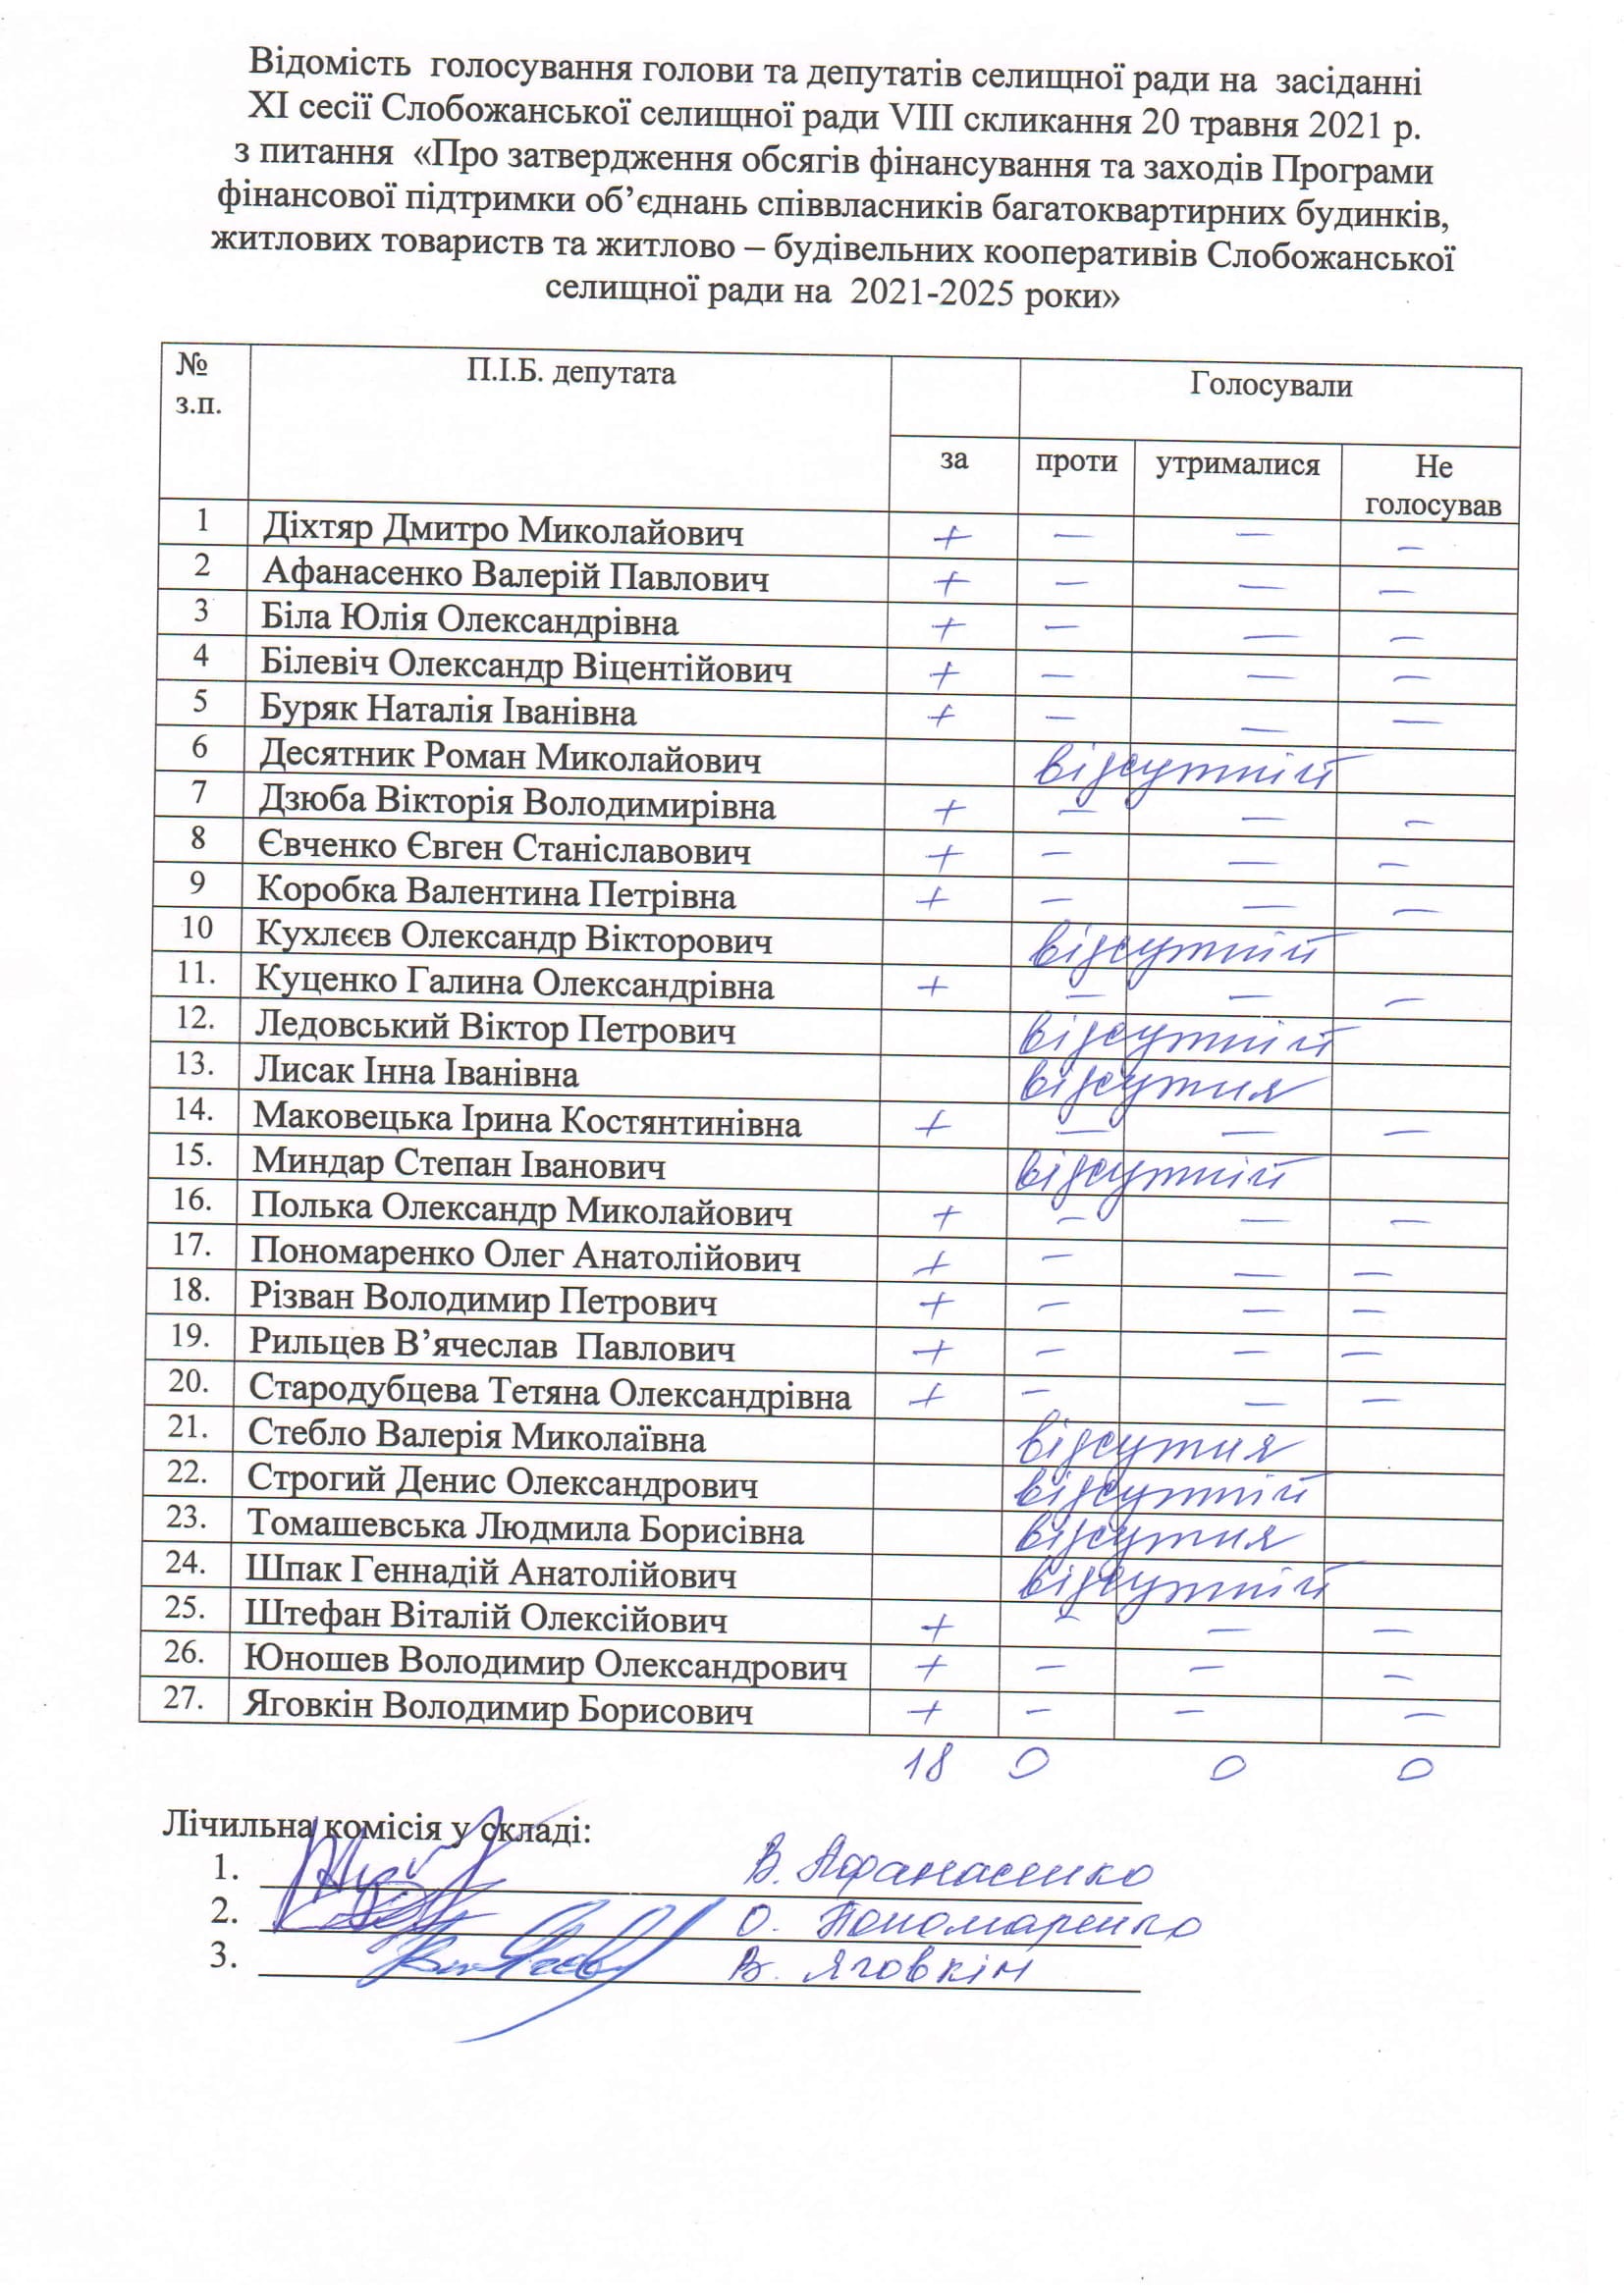 Відомість голосування голови та депутатів селищної ради на засіданні
XI сесії Слобожанської селищної ради VIII скликання 20 травня 2021 р.
з питання «Про затвердження обсягів фінансування та заходів Програми
фінансової підтримки об’єднань співвласників багатоквартирних будинків,
житлових товариств та житлово – будівельних кооперативів Слобожанської
селищної ради на 2021-2025 роки»
№ з.п. П.І.Б. депутата Голосували
за проти утрималися Не голосував
1 Діхтяр Дмитро Миколайович + – – –
2 Афанасенко Валерій Павлович + – – –
3 Біла Юлія Олександрівна + – – –
4 Білевіч Олександр Віцентійович + – – –
5 Буряк Наталія Іванівна + – – –
6 Десятник Роман Миколайович відсутній
7 Дзюба Вікторія Володимирівна + – – –
8 Євченко Євген Станіславович + – – –
9 Коробка Валентина Петрівна + – – –
10 Кухлєєв Олександр Вікторович відсутній
11. Куценко Галина Олександрівна + – – –
12. Ледовський Віктор Петрович відсутній
13. Лисак Інна Іванівна відсутня
14. Маковецька Ірина Костянтинівна + – – –
15. Миндар Степан Іванович відсутній
16. Полька Олександр Миколайович + – – –
17. Пономаренко Олег Анатолійович + – – –
18. Різван Володимир Петрович + – – –
19. Рильцев В’ячеслав Павлович + – – –
20. Стародубцева Тетяна Олександрівна + – – –
21. Стебло Валерія Миколаївна відсутня
22. Строгий Денис Олександрович відсутній
23. Томашевська Людмила Борисівна відсутня
24. Шпак Геннадій Анатолійович відсутній
25. Штефан Віталій Олексійович + – – –
26. Юношев Володимир Олександрович + – – –
27. Яговкін Володимир Борисович + – – –
18 0 0 0
Лічильна комісія у складі:
1. В. Афанасенко
2. О. Пономаренко
3. В. Яговкін